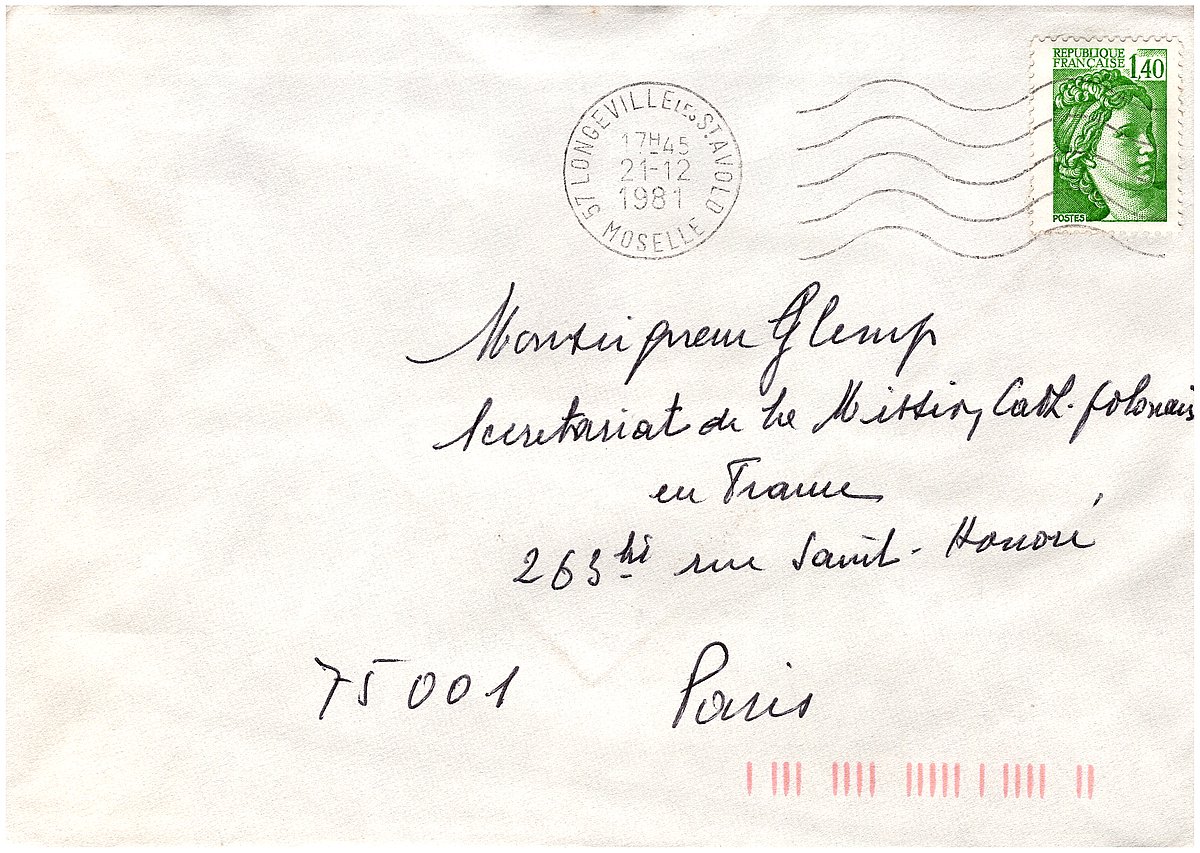 REPUBLIQUE
FRANÇAISE 1,40
POSTES
57 LONGEVILLE LES ST AVOLD
17H45
21-12
1981
MOSELLE
Monseigneur Glemp
Secretariat de la Mission Cath. polonais
en France
263 bis rue Saint-Honoré
75001 Paris